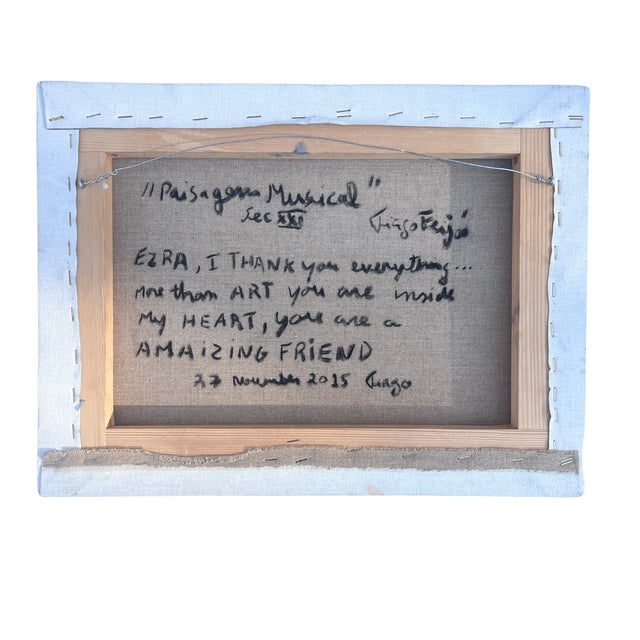 "Paisagem Musical"
Sec XXI
Tiago Feijó
EZRA, I THANK you everything...
More than ART you are inside
My HEART, you are a
AMAIZING FRiEND
27 November 2015 Tiago